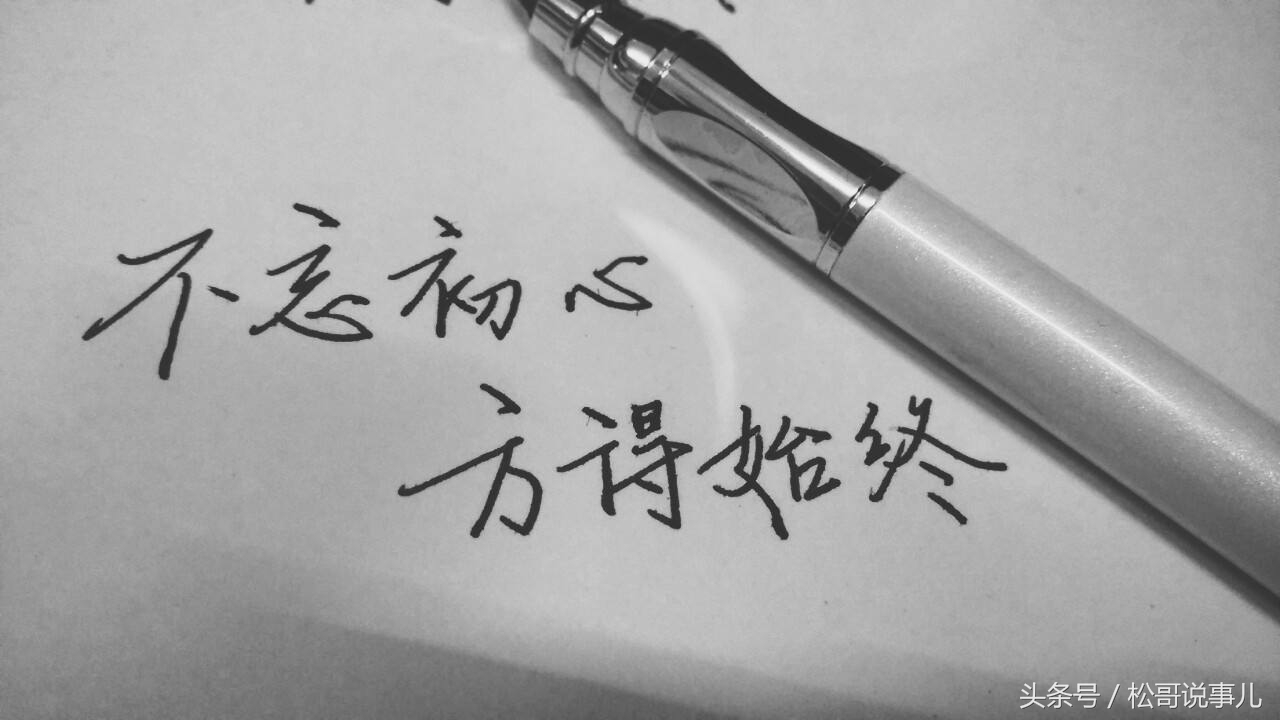 不忘初心
方得始终
头条号 / 松哥说事儿